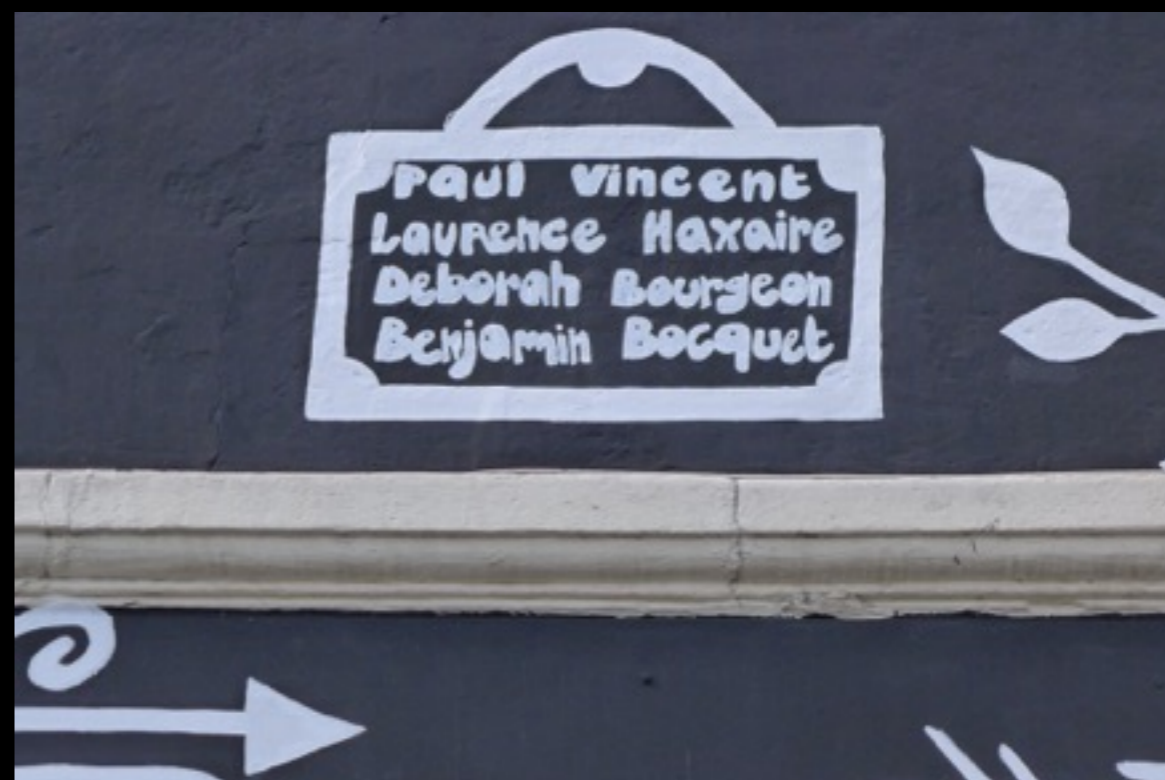 Paul Vincent
Laurence Haxaire
Deborah Bourgeon
Benjamin Bocquet